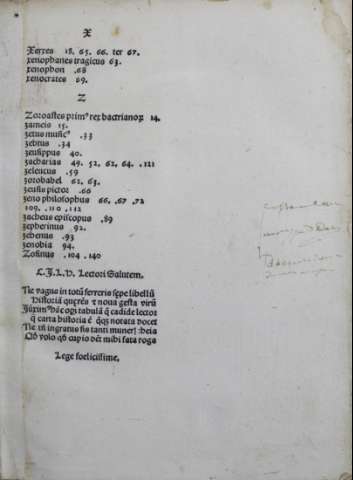 X
Xerxes 18. 65. 66. ter 67.
xenophanes tragicus 63.
xenophon .68
xenocrates 69.
Z
Zoroastes primꝰ rex bactrianoꝝ 14.
zameis 15.
zetus musicꝰ .33
zebitus .34
zeusippus 40.
zacharias 49. 52. 62. 64. .121
zeleucus .59
zorobabel 62. 63.
zeusis pictor .66
zeno philosophus 66. .67. .72
109. .110 .112
zacheus episcopus .89
zepherinus 92.
zebenus .93
zenobia 94.
Zosinus .104 .140
L.J.L.V. Lectori Salutem.
Ne vagus in totū ferreris sepe libellū
Historiā querēs ⁊ noua gesta virū
tabulā q̄ cadide lector
q̄ carta historia ē notata docet
Ne ingratus sis tanti
volo qđ cupio det mihi fata roga
Lege foelicissime.